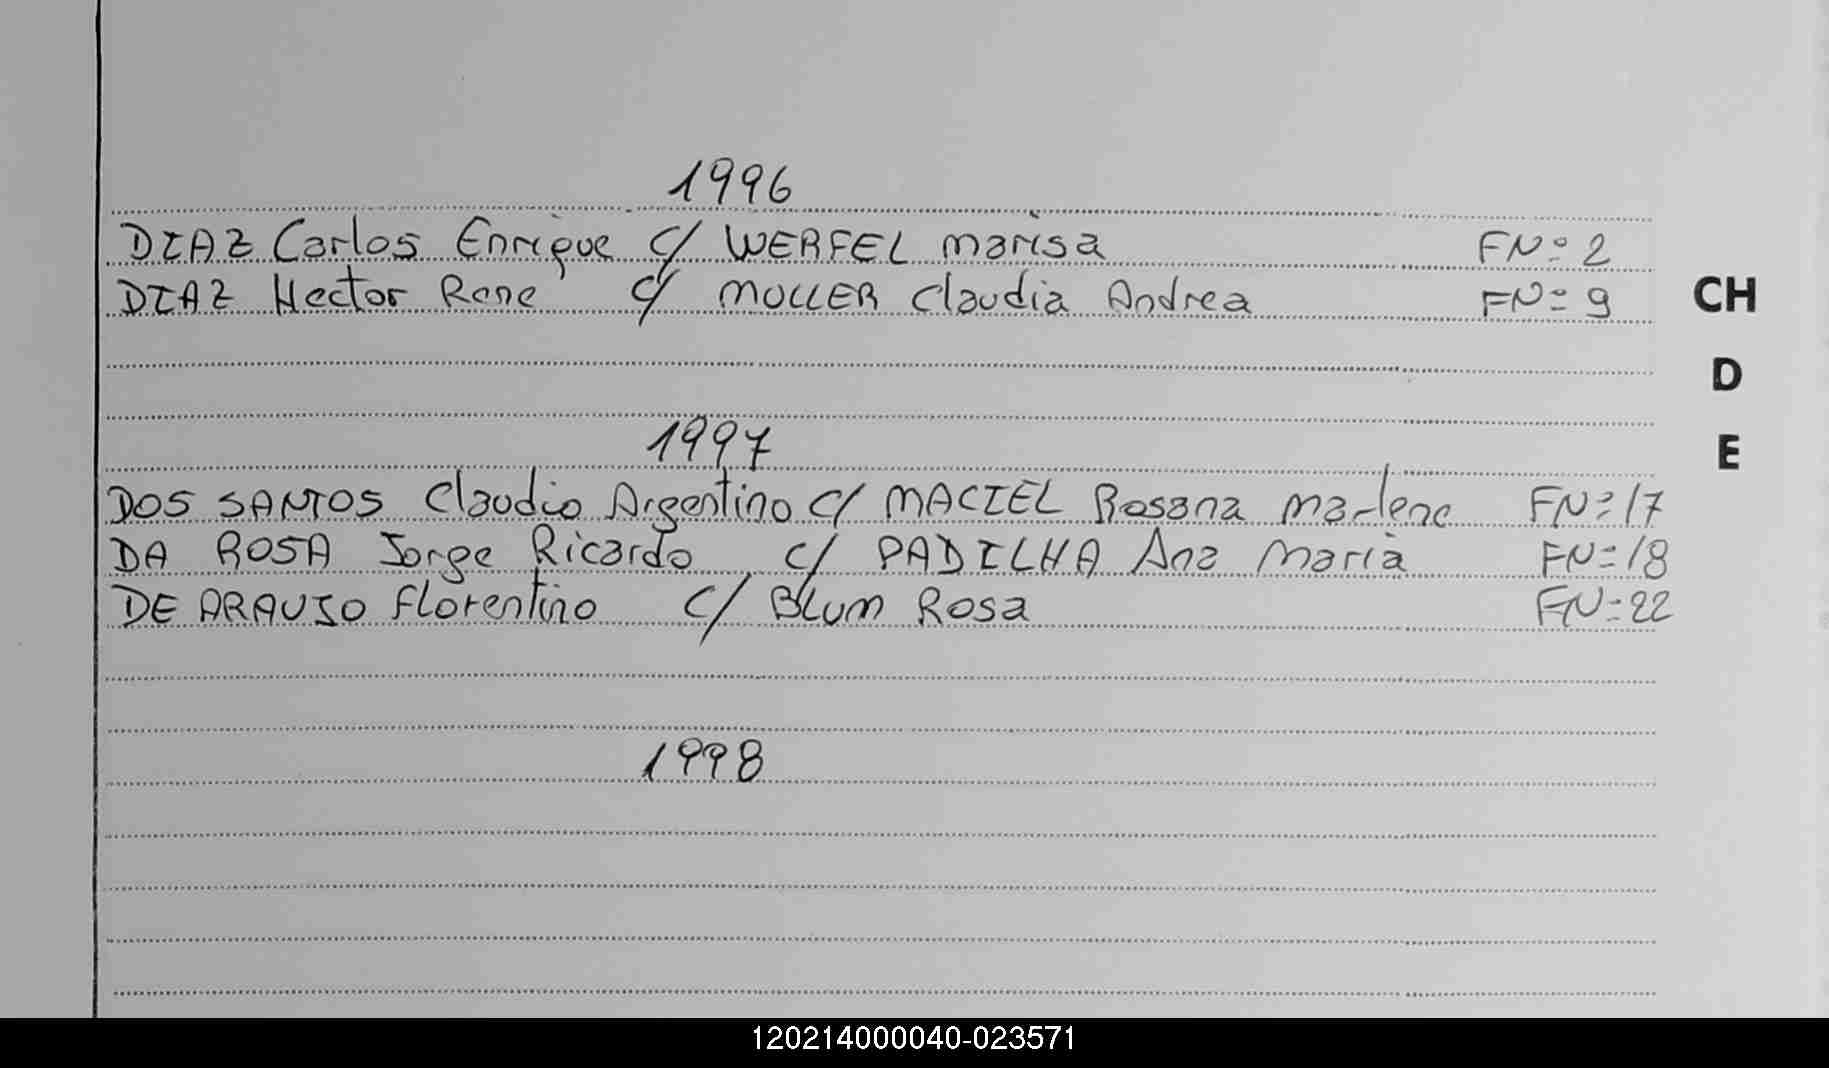 1996
DIAZ Carlos Enrique c/ WERFEL Marisa FNº 2
DIAZ Hector Rene c/ MULLER Claudia Andrea FNº 9
CH
D
1997
E
DOS SANTOS Claudio Argentino c/ MACIEL Rosana Marlene FNº 17
DA ROSA Jorge Ricardo c/ PADILHA Ana Maria FNº 18
DE ARAUJO Florentino c/ BLUM Rosa FNº 22
1998
120214000040-023571